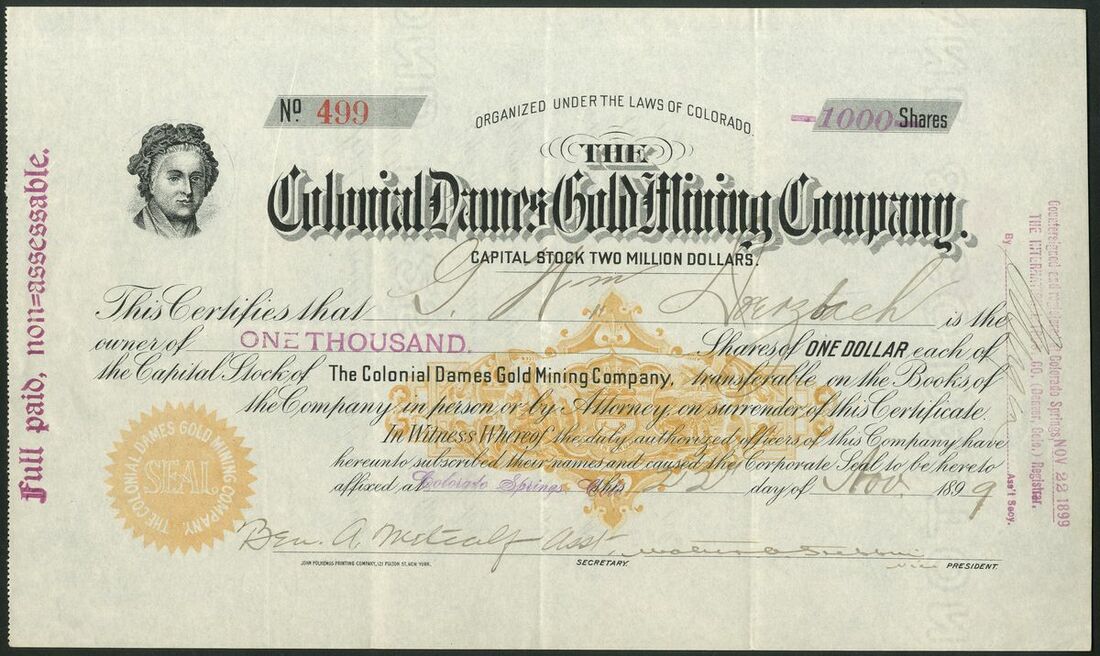 No 499
ORGANIZED UNDER THE LAWS OF COLORADO.
-1000- Shares
THE
Colonial Dames Gold Mining Company.
CAPITAL STOCK TWO MILLION DOLLARS.
This Certifies that G. Wm is the
owner of ONE THOUSAND. Shares of ONE DOLLAR each of
the Capital Stock of The Colonial Dames Gold Mining Company, transferable on the Books of
the Company in person or by Attorney on surrender of this Certificate.
In Witness Whereof the duly authorized officers of this Company have
hereunto subscribed their names and caused the Corporate Seal to be hereto
affixed at Colorado Springs, Colo. this 22 day of Nov 1899
Ben. A. Metcalf Asst.
SECRETARY.
Vice PRESIDENT.
JOHN POLHEMUS PRINTING COMPANY, 121 FULTON ST. NEW YORK.
THE COLONIAL DAMES GOLD MINING COMPANY.
SEAL
Full paid, non=assessable.
Countersigned and registered Colorado Springs, NOV 22 1899
THE CO. (Denver, Colo.) Registrar.
By Ass't Secy.